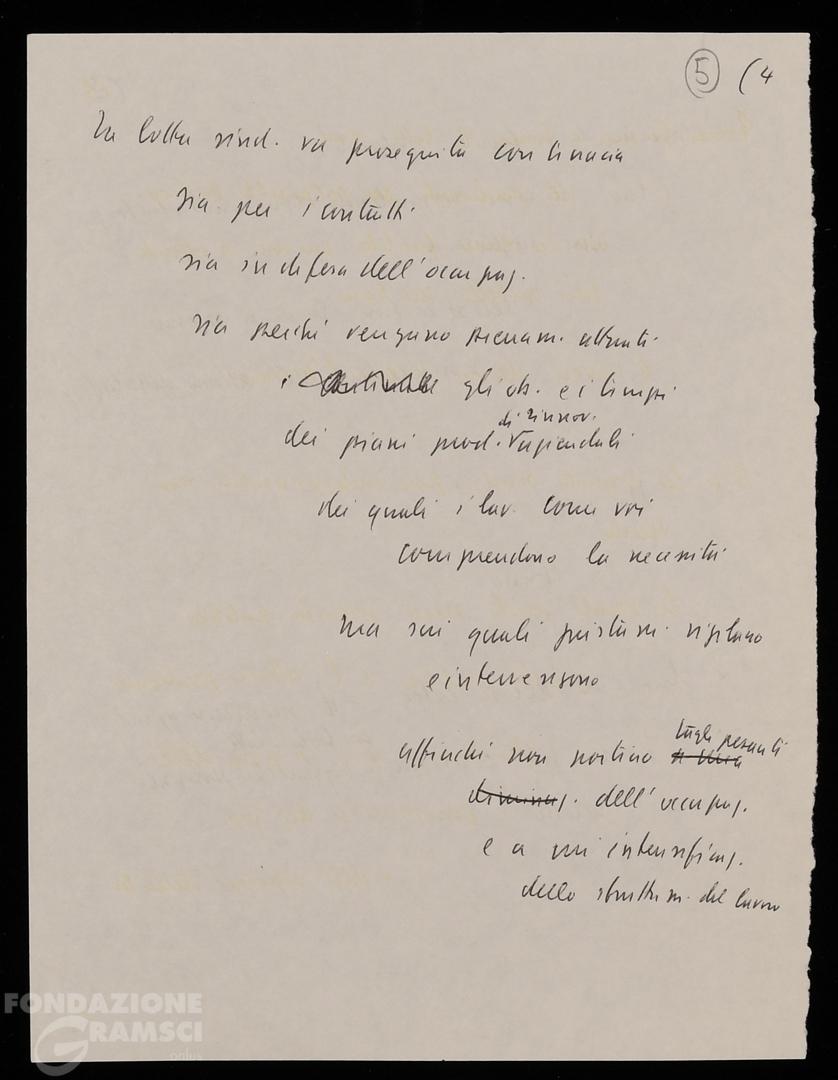 5 (4
La lotta sind. va proseguita con tenacia
sia per i contratti
sia in difesa dell'occupaz.
sia perché vengano pienam. attuati
i gli ob. e i tempi
di rinnov.
dei piani prod. aziendali
dei quali i lav. come voi
comprendono la necessità
ma sui quali giustam. vigilano
e intervengono
affinché non portino tagli pesanti
diminuz. dell'occupaz.
e a un'intensificaz.
dello sfruttam. del lavoro
FONDAZIONE
GRAMSCI
onlus